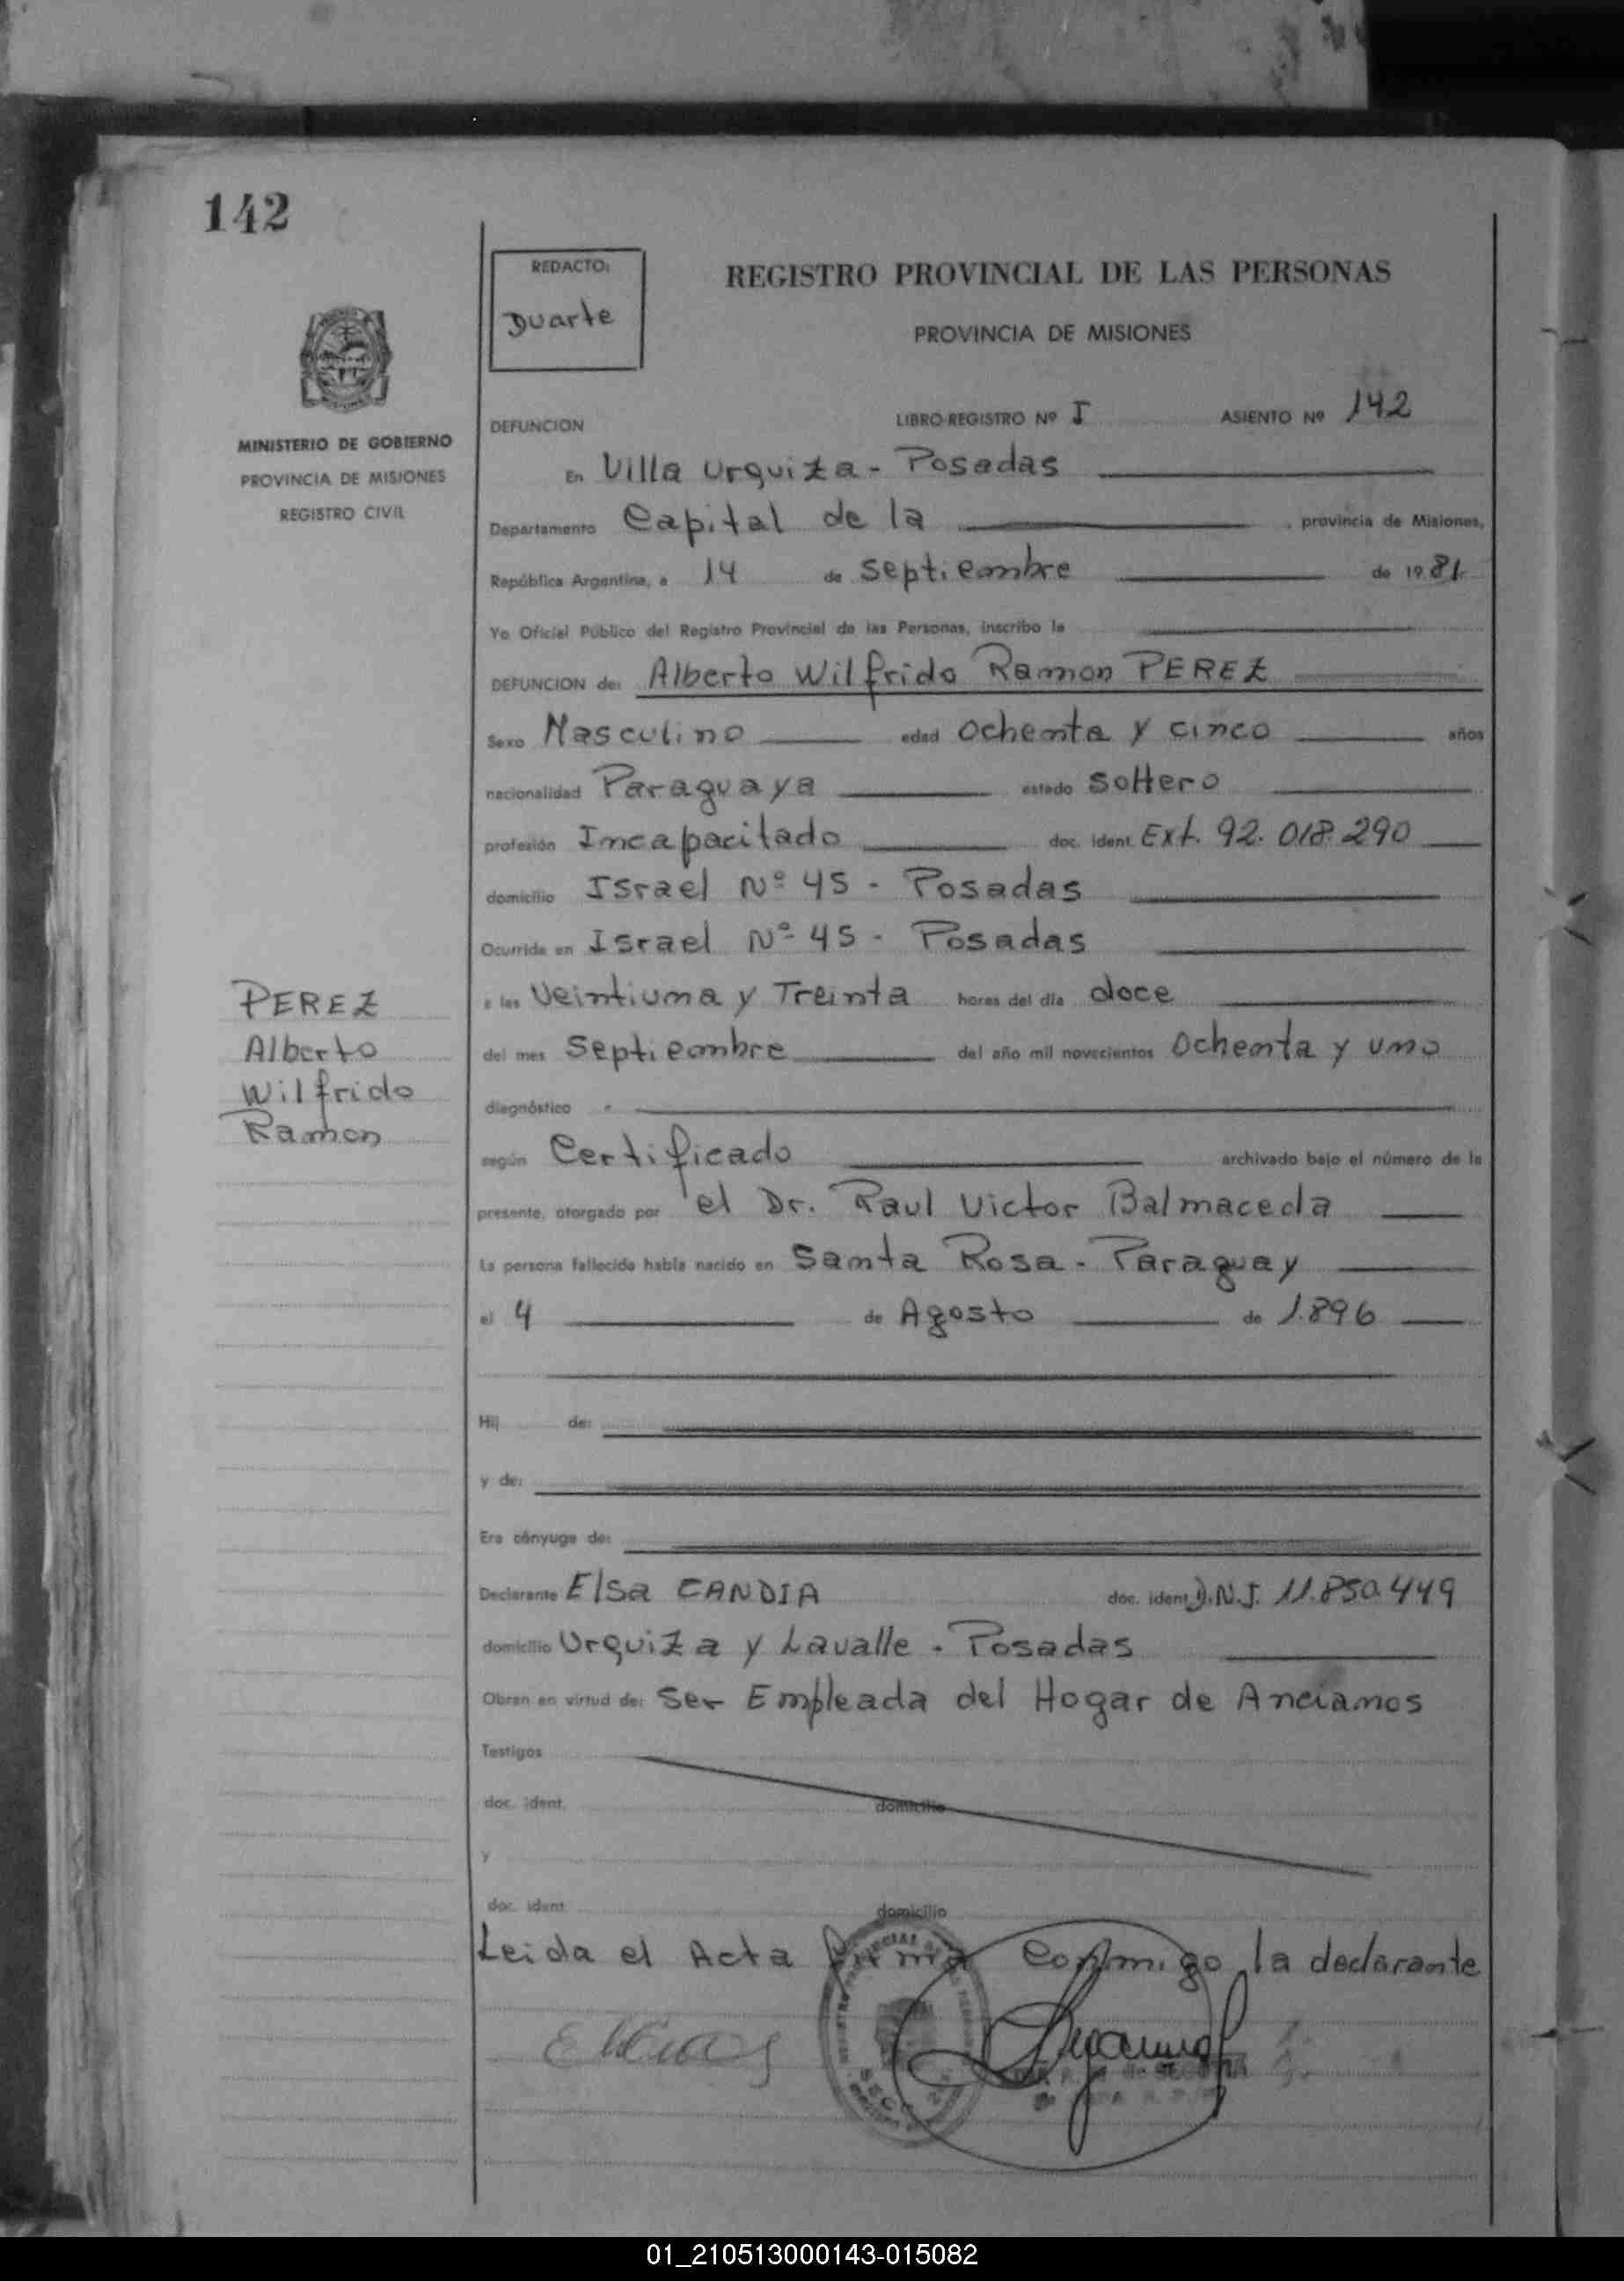 142
REDACTO:
Duarte
REGISTRO PROVINCIAL DE LAS PERSONAS
PROVINCIA DE MISIONES
MINISTERIO DE GOBIERNO
PROVINCIA DE MISIONES
REGISTRO CIVIL
DEFUNCION LIBRO-REGISTRO Nº I ASIENTO Nº 142
En Villa Urquiza - Posadas
Departamento Capital de la , provincia de Misiones,
República Argentina, a 14 de Septiembre de 1981
Yo Oficial Público del Registro Provincial de las Personas, inscribo la
DEFUNCION de: Alberto Wilfrido Ramon PEREZ
Sexo Masculino edad Ochenta y cinco años
nacionalidad Paraguaya estado Soltero
profesión Incapacitado doc. ident. Ext. 92.018.290
domicilio Israel Nº 45 - Posadas
Ocurrida en Israel Nº 45 - Posadas
a las Veintiuna y Treinta horas del día doce
del mes Septiembre del año mil novecientos Ochenta y uno
diagnóstico
según Certificado archivado bajo el número de la
presente, otorgado por el Dr. Raul Victor Balmaceda
La persona fallecida había nacido en Santa Rosa - Paraguay
el 4 de Agosto de 1.896
Hij de:
y de:
Era cónyuge de:
Declarante Elsa CANDIA doc. ident. D.N.I. 11.850.449
domicilio Urquiza y Lavalle - Posadas
Obran en virtud de: Ser Empleada del Hogar de Ancianos
Testigos
doc. ident. domicilio
y
doc. ident. domicilio
Leida el Acta firma conmigo la declarante
PEREZ
Alberto
Wilfrido
Ramon
01_210513000143-015082